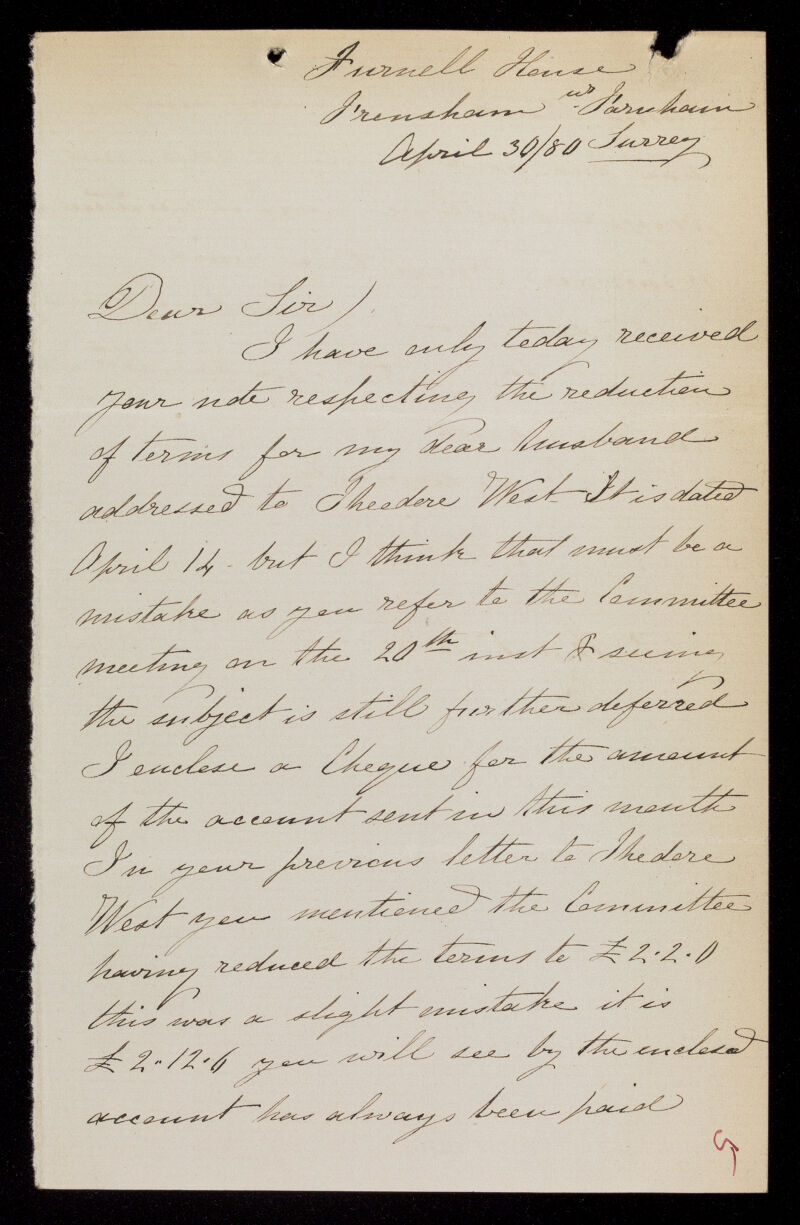 Furnell House
Frensham nr Farnham
April 30/80 Surrey
Dear Sir/
I have only today received
your note respecting the reduction
of terms for my dear husband
addressed to Theodore West It is dated
April 14 - but I think that must be a
mistake as you refer to the Committee
meeting on the 20th inst & seeing
the subject is still further deferred
I enclose a Cheque for the amount
of the account sent in this month
In your previous letter to Thedore
West you mentioned the Committee
having reduced the terms to £2.2.0
this was a slight mistake it is
£2.12.6 you will see by the enclosed
account has always been paid
5